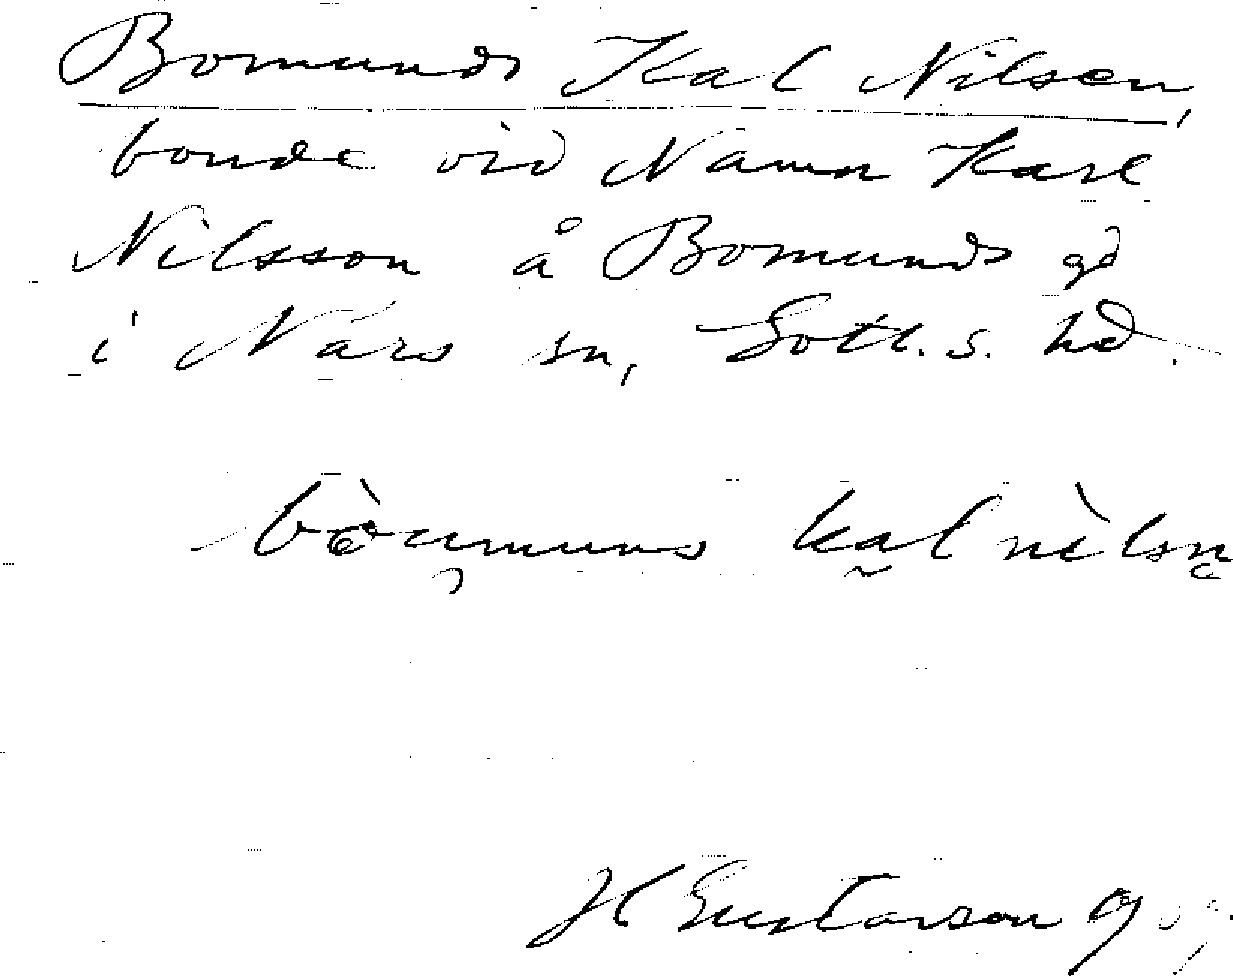 Bomunds Kal Nilsen,
bonde vid Namn Karl
Nilsson å Bomunds gd
i Närs sn, Gotl. s. hd.
kal nilsn
Gustavson